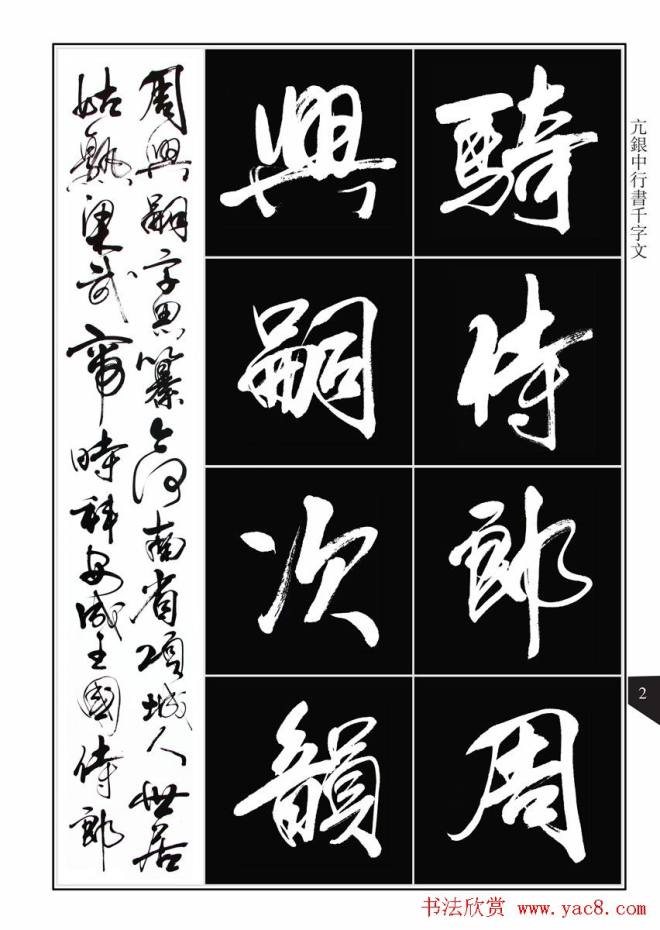 亢銀中行書千字文
騎侍郎周
興嗣次韻
周興嗣字思纂今河南省項城人世居
姑熟梁武帝時拜安成王國侍郎
2
书法欣赏 www.yac8.com